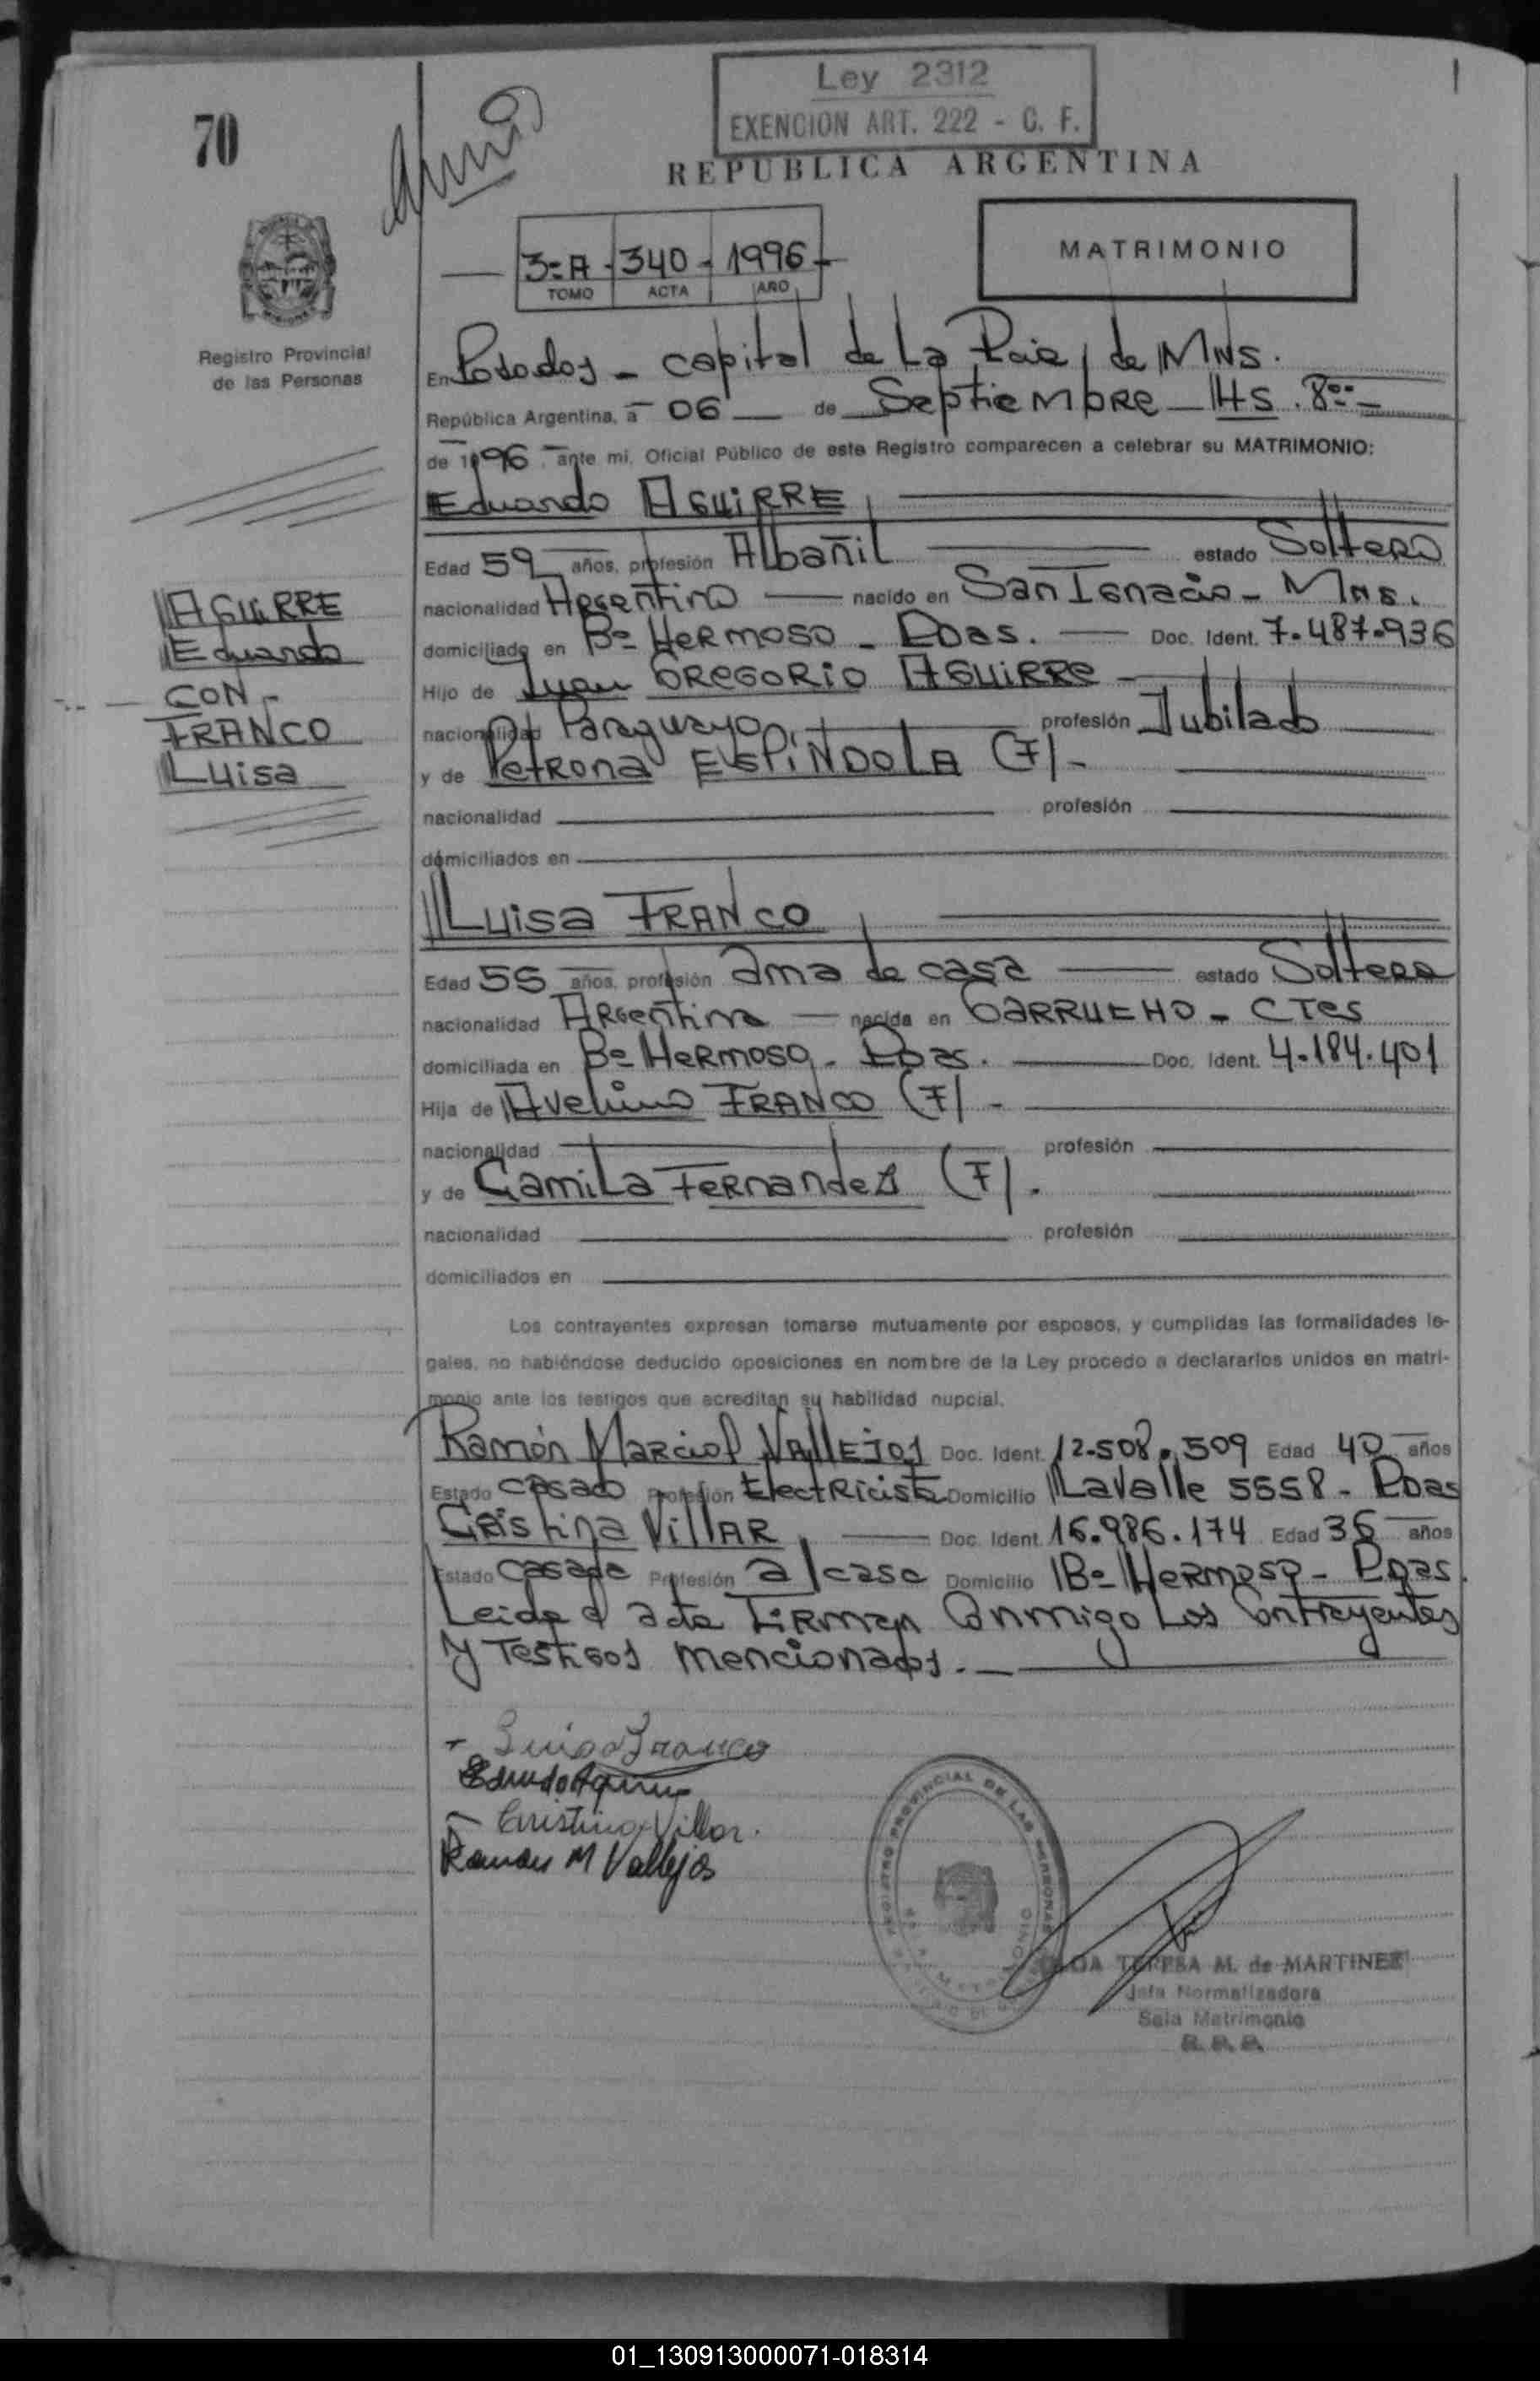 70
Ley 2312
EXENCION ART. 222 - C. F.
REPUBLICA ARGENTINA
3=A - 340 - 1996
TOMO ACTA AÑO
MATRIMONIO
Registro Provincial
de las Personas
En Posadas - capital de La Pcia, de MNS.
República Argentina, a 06 de Septiembre Hs. 8
de 1996, ante mi, Oficial Público de este Registro comparecen a celebrar su MATRIMONIO:
Eduardo AGUIRRE
Edad 59 años, profesión Albañil estado Soltero
AGUIRRE
Eduardo
CON -
FRANCO
Luisa
nacionalidad Argentino nacido en San Ignacio - Mns.
domiciliado en Bº Hermoso - Pdas. Doc. Ident. 7.487.936
Hijo de Juan GREGORIO AGUIRRE -
nacionalidad Paraguayo profesión Jubilado
y de Petrona ESPINDOLA (F) -
nacionalidad profesión
domiciliados en
Luisa FRANCO
Edad 55 años, profesión ama de casa estado Soltera
nacionalidad Argentina nacida en GARRUCHO - CTES
domiciliada en Bº Hermoso - Pdas. Doc. Ident. 4.184.401
Hija de Avelino FRANCO (F) -
nacionalidad profesión
y de Camila Fernandez (F).
nacionalidad profesión
domiciliados en
Los contrayentes expresan tomarse mutuamente por esposos, y cumplidas las formalidades le-
gales, no habiéndose deducido oposiciones en nombre de la Ley procedo a declararlos unidos en matri-
monio ante los testigos que acreditan su habilidad nupcial.
Ramón Marcial VALLEJOS Doc. Ident. 12.508.509 Edad 40 años
Estado casado Profesión Electricista Domicilio Lavalle 5558 - Pdas
Cristina VILLAR Doc. Ident. 16.986.174 Edad 36 años
Estado casada Profesión a/casa Domicilio Bº Hermoso - Pdas.
Leida el acta Firman Conmigo Los Contrayentes
y Testigos mencionados. -
- Luisa Franco
Eduardo Aguirre
- Cristina Villar.
Ramon M Vallejos
REGISTRO PROVINCIAL DE LAS PERSONAS
TERESA M. de MARTINEZ
Jefa Normalizadora
Sala Matrimonio
R. P. P.
01_130913000071-018314